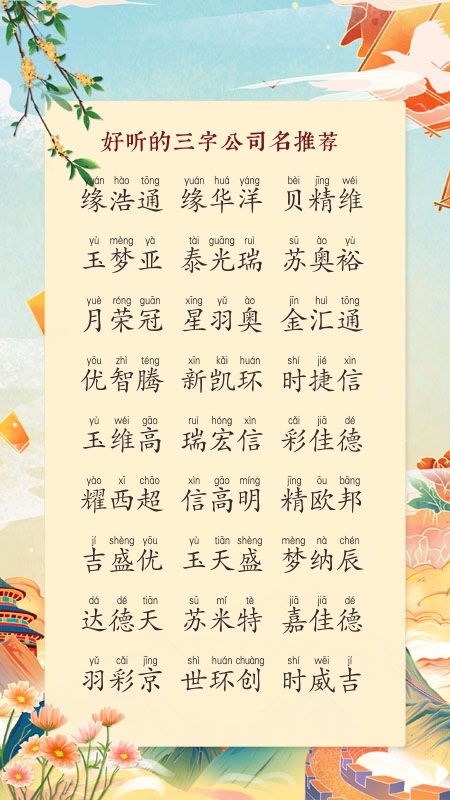 好听的三字公司名推荐
yuán hào tōng yuán huá yáng bèi jīng wéi
缘浩通 缘华洋 贝精维
yù mèng yà tài guāng ruì sū ào yù
玉梦亚 泰光瑞 苏奥裕
yuè róng guān xīng yǔ ào jīn huì tōng
月荣冠 星羽奥 金汇通
yōu zhì téng xīn kǎi huán shí jié xìn
优智腾 新凯环 时捷信
yù wéi gāo ruì hóng xìn cǎi jiā dé
玉维高 瑞宏信 彩佳德
yào xī chāo xìn gāo míng jīng ōu bāng
耀西超 信高明 精欧邦
jí shèng yōu yù tiān shèng mèng nà chén
吉盛优 玉天盛 梦纳辰
dá dé tiān sū mǐ tè jiā jiā dé
达德天 苏米特 嘉佳德
yǔ cǎi jīng shì huán chuàng shí wēi jí
羽彩京 世环创 时威吉